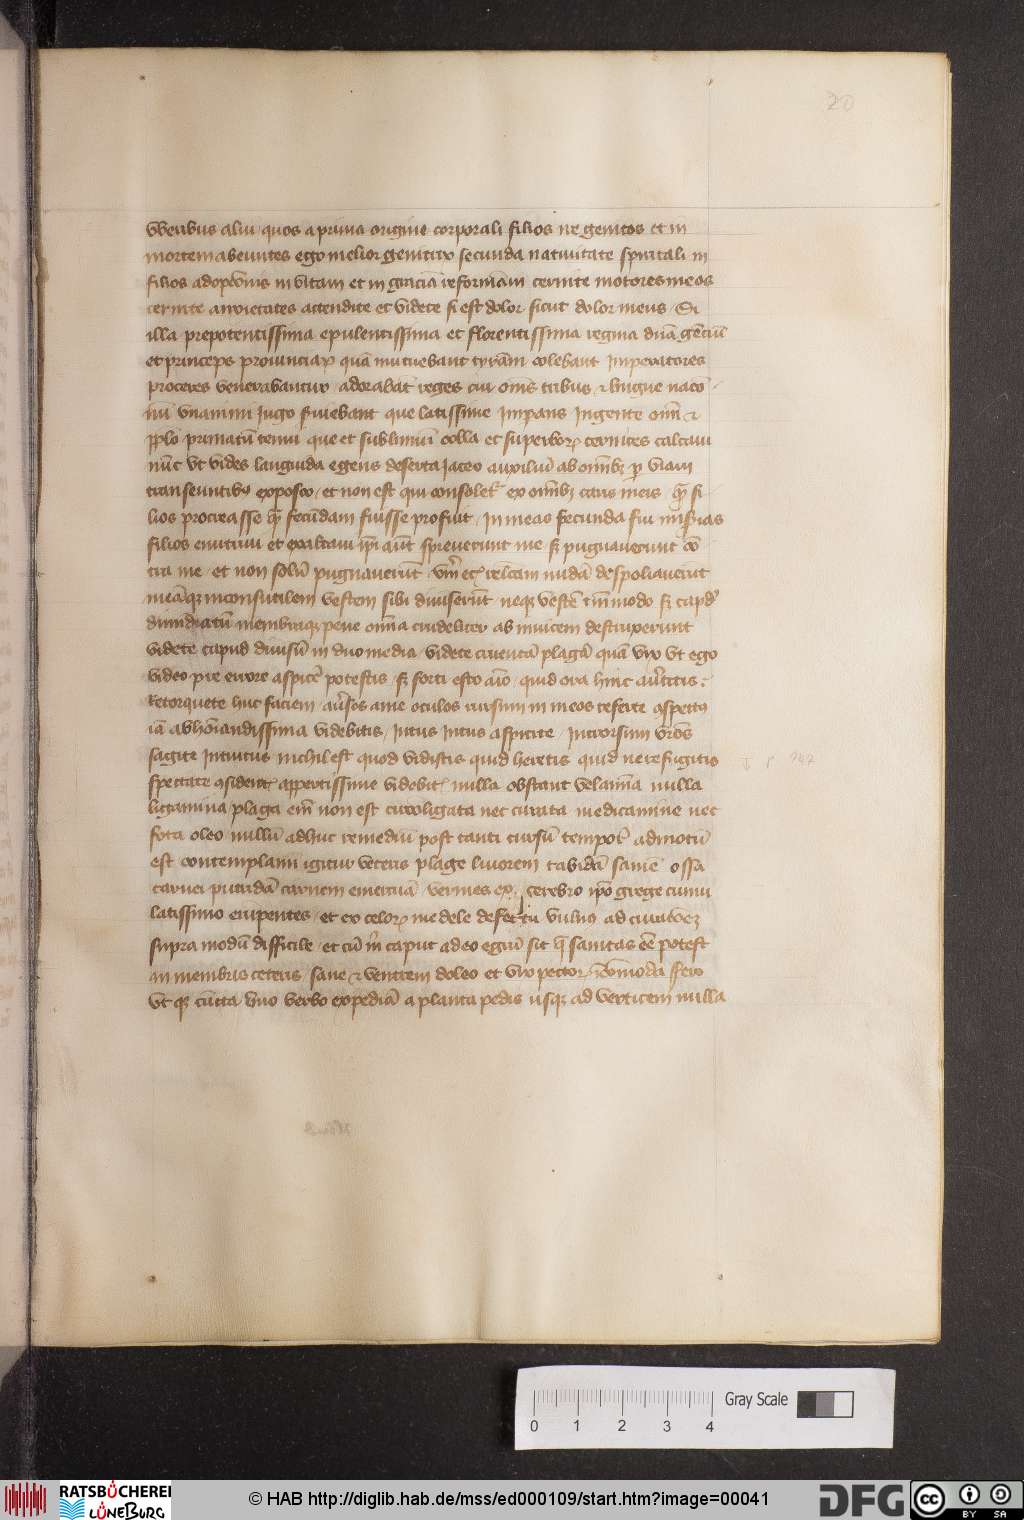 20
vberibus alui quos a prima origine corporali filios ire genitos et in
mortem abeuntes ego melior genitrix secunda natiuitate spũitali in
filios adoptiuis in vitam et in graciã reformãui cernite motores meos
cernite anxietates attendite et videte si est dolor sicut dolor meus / Si
illa prepotentissima opulentissima et florentissima regina dñã gẽciũ
et princeps prouinciaꝝ quã metuebant tyrãni colebant Imperatores
proceres venerabantur adorabãt reges cui oms tribus ⁊ lingue nacõ
nũ vnanimi Iugo seruiebant que latissime Imperans Ingente om̃ ⁊
pp̃lo primatũ tenui que et sublimiũ colla et superboꝝ ceruices calcaui
nũc vt vides languida egens deserta Iaceo auxiliũ ab om̃ibꝫ ꝑ viam
transeuntibꝫ exposco / et non est qui consolet ex om̃ibꝫ caris meis /  fi
lios procreasse  fecũdam fuisse profuit / In meas fecunda fui miserias
filios enutriui et exaltaui ip̃i aũt spreuerunt me sꝫ pugnauerunt cõ
tra me / et non solũ pugnauerũt / vm̃ eciã nudã despoliauerũt
meãqꝫ inconsutilem vestem sibi diuiserũt neqꝫ vestẽ tm̃modo sꝫ capd
dimidiatũ membraqꝫ pene om̃ia crudeliter ab inuicem destruxerunt
videte capud diuisũ in duo media / videte cruentã plagã quã vix vt ego
video pre errore aspicẽ potestis / sꝫ forti esto aĩo / quid ora hinc auertitis :
Retorquete huc faciem / auersos a me oculos rursum in meos referte aspectꝫ
iã abhoĩandissima videbitis / Intus Intus aspicite / Introrsum vr̃os
sagite Intuitus nichil est quod vidistis quid heretis quid ne refugitis
spectate ꝯsident appertissime videbit nulla obstant velamĩa nulla
ligamina plaga em̃ non est circoligata nec curata medicamine nec
fota oleo nullũ adhuc remediũ post tanti cursũ tempoꝝ admotũ
est contemplami igitur veteris plage liuorem tabidã saniẽ ossa
carnei putridã carnem emortuã / vermes ex cerebro ip̃o grege cumu
latissimo erupentes / et ex celoꝝ medele defectu vulnꝫ ad curabilẽ
supra modũ difficile / et cũ m̃ caput adeo egrũ sit  sanitas eẽ potest
in membris ceteris sane ⁊ ventrem doleo et vix pector ꝯmoda ffero
vt qꝫ cũcta vno verbo expediã a planta pedis usqꝫ ad verticem nulla
Gray Scale
0 1 2 3 4
RATSBÜCHEREI
LÜNEBURG
© HAB http://diglib.hab.de/mss/ed000109/start.htm?image=00041
DFG
cc BY SA